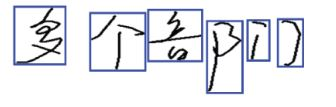 多个部门